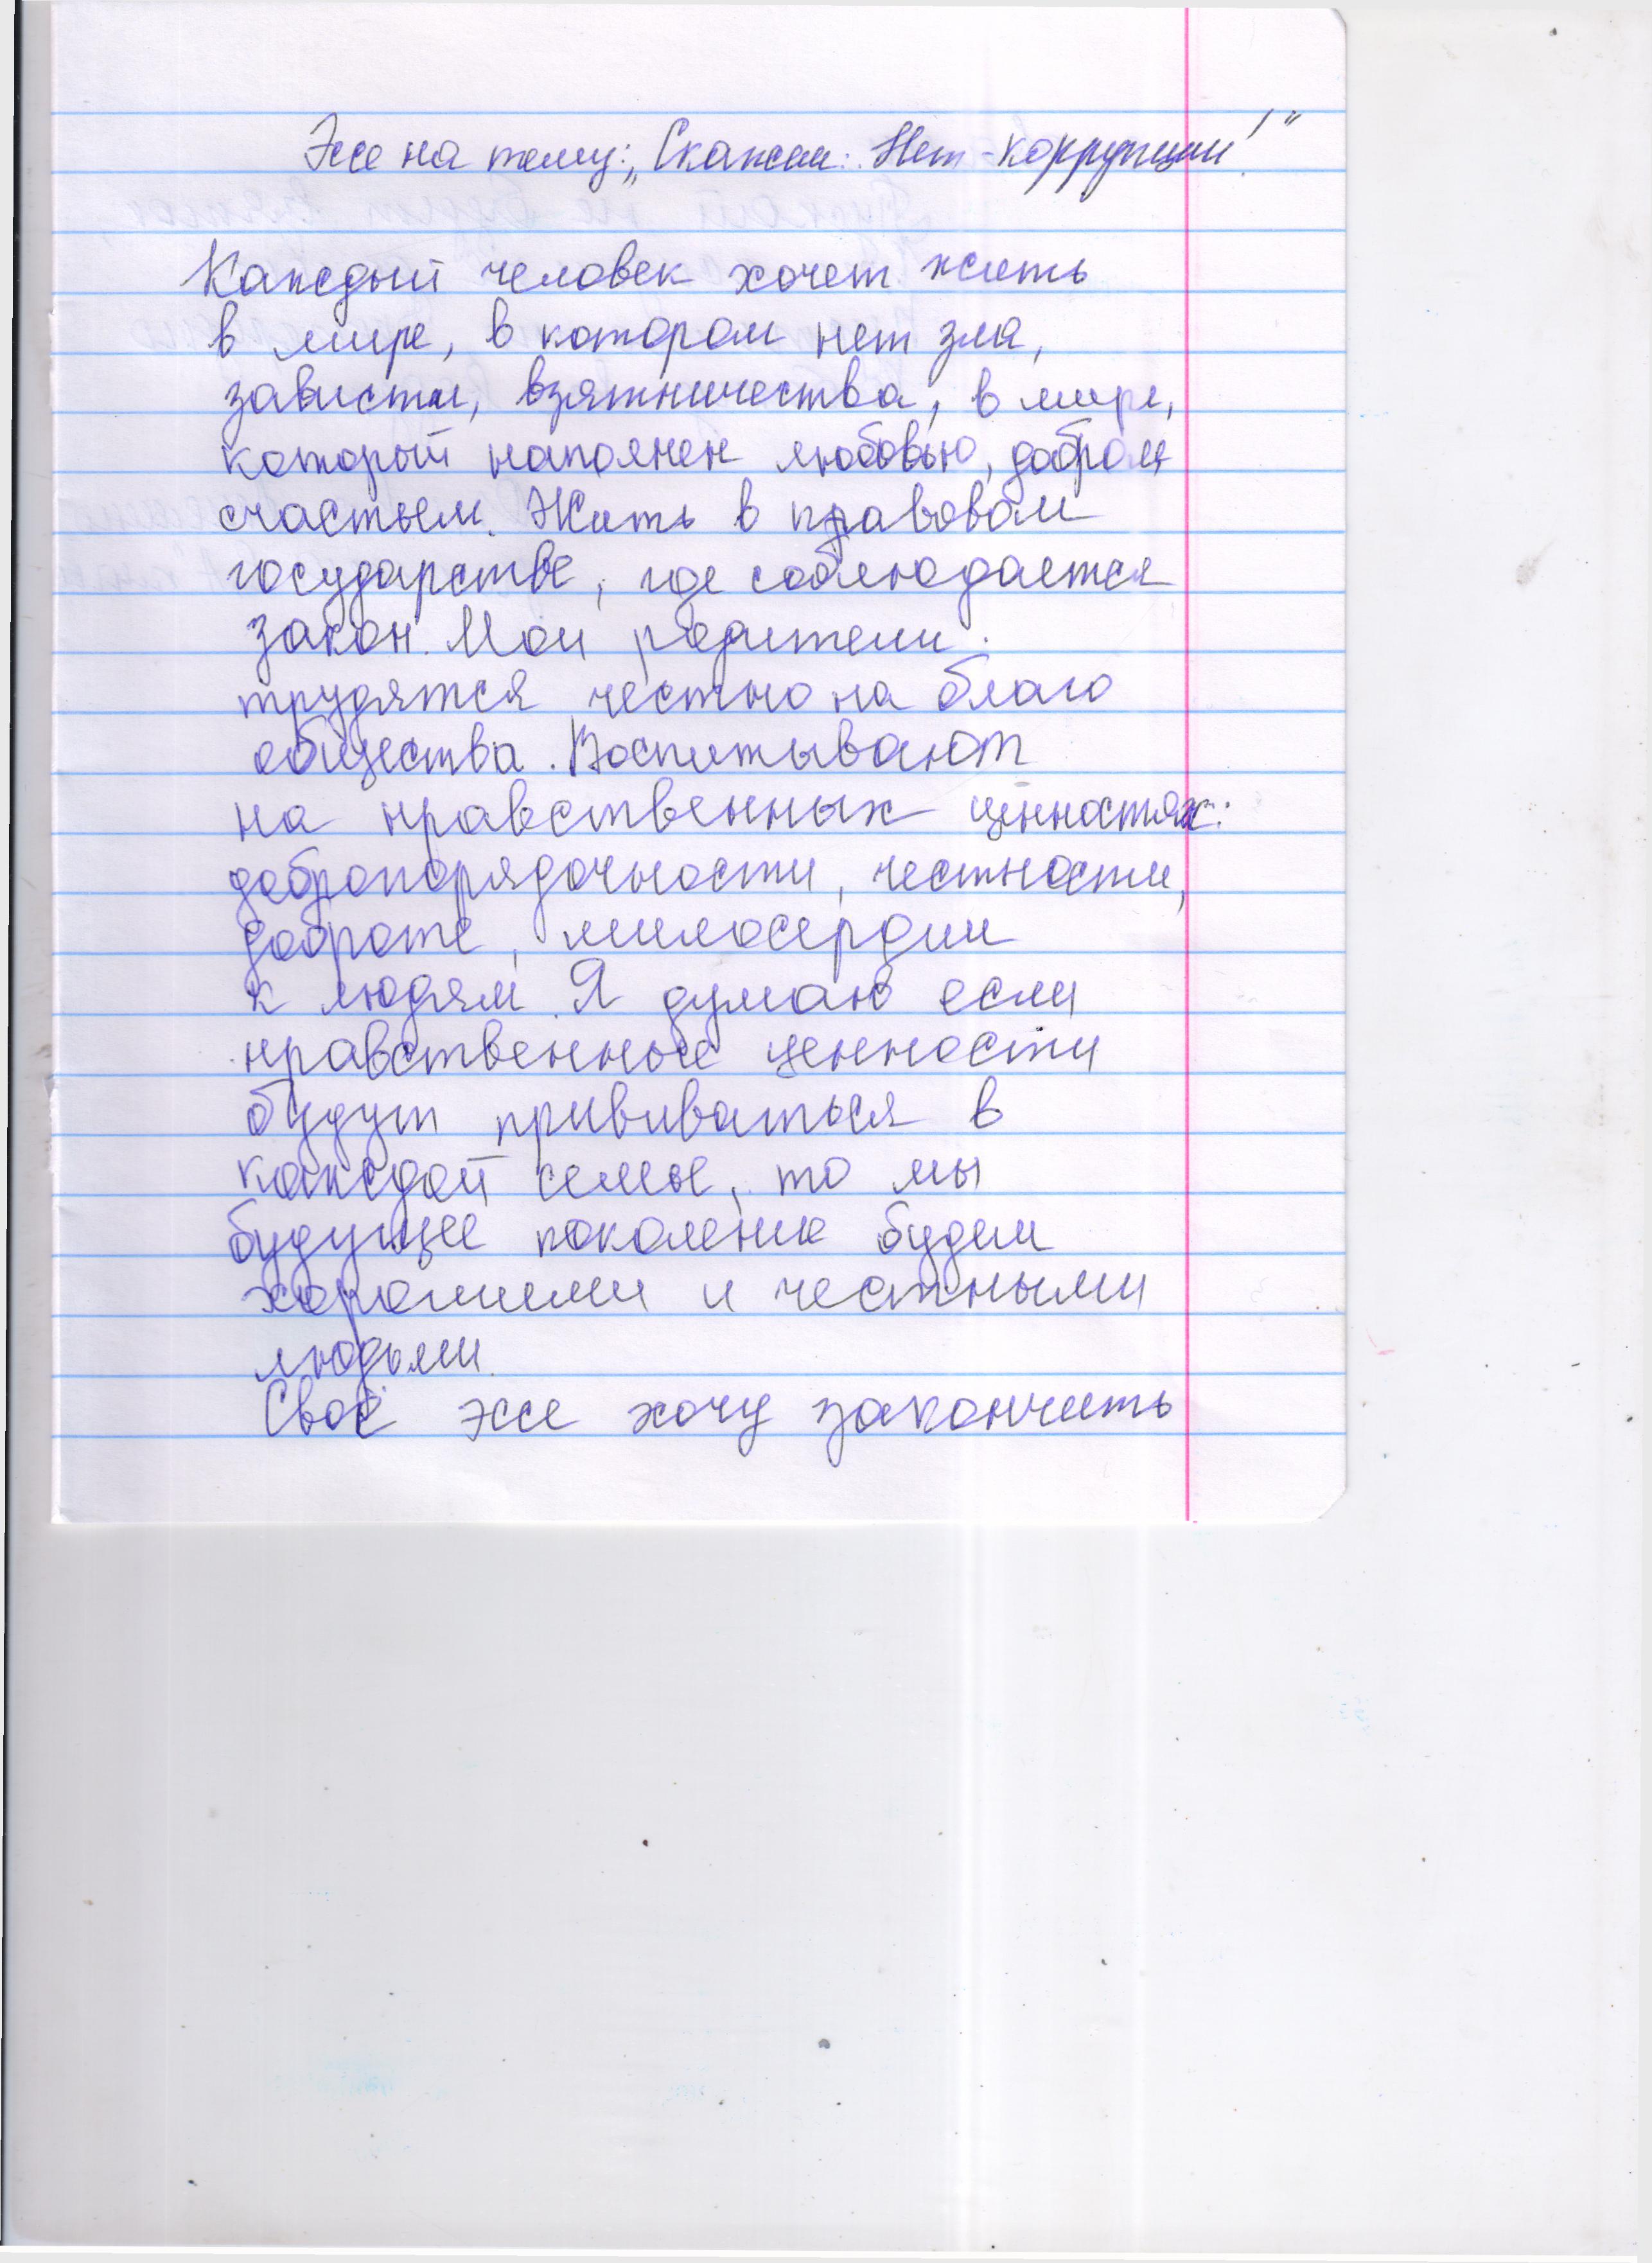 Эссе на тему: „Скажем: Нет - коррупции!"
Каждый человек хочет жить
в мире, в котором нет зла,
зависти, взятничества, в мире,
который наполнен любовью, добром
счастьем. Жить в правовом
государстве, где соблюдается
закон. Мои родители
трудятся честно на благо
общества. Воспитывают
на нравственных ценностях:
добропорядочности, честности,
доброте, милосердии
к людям. Я думаю если
нравственные ценности
будут прививаться в
каждой семье, то мы
будущее поколение будем
хорошими и честными
людьми.
Своё эссе хочу закончить